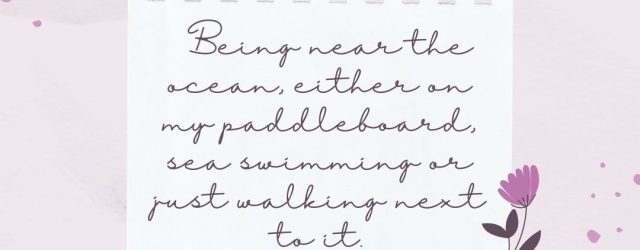 Being near the
ocean, either on
my paddleboard,
sea swimming or
just walking next
to it.